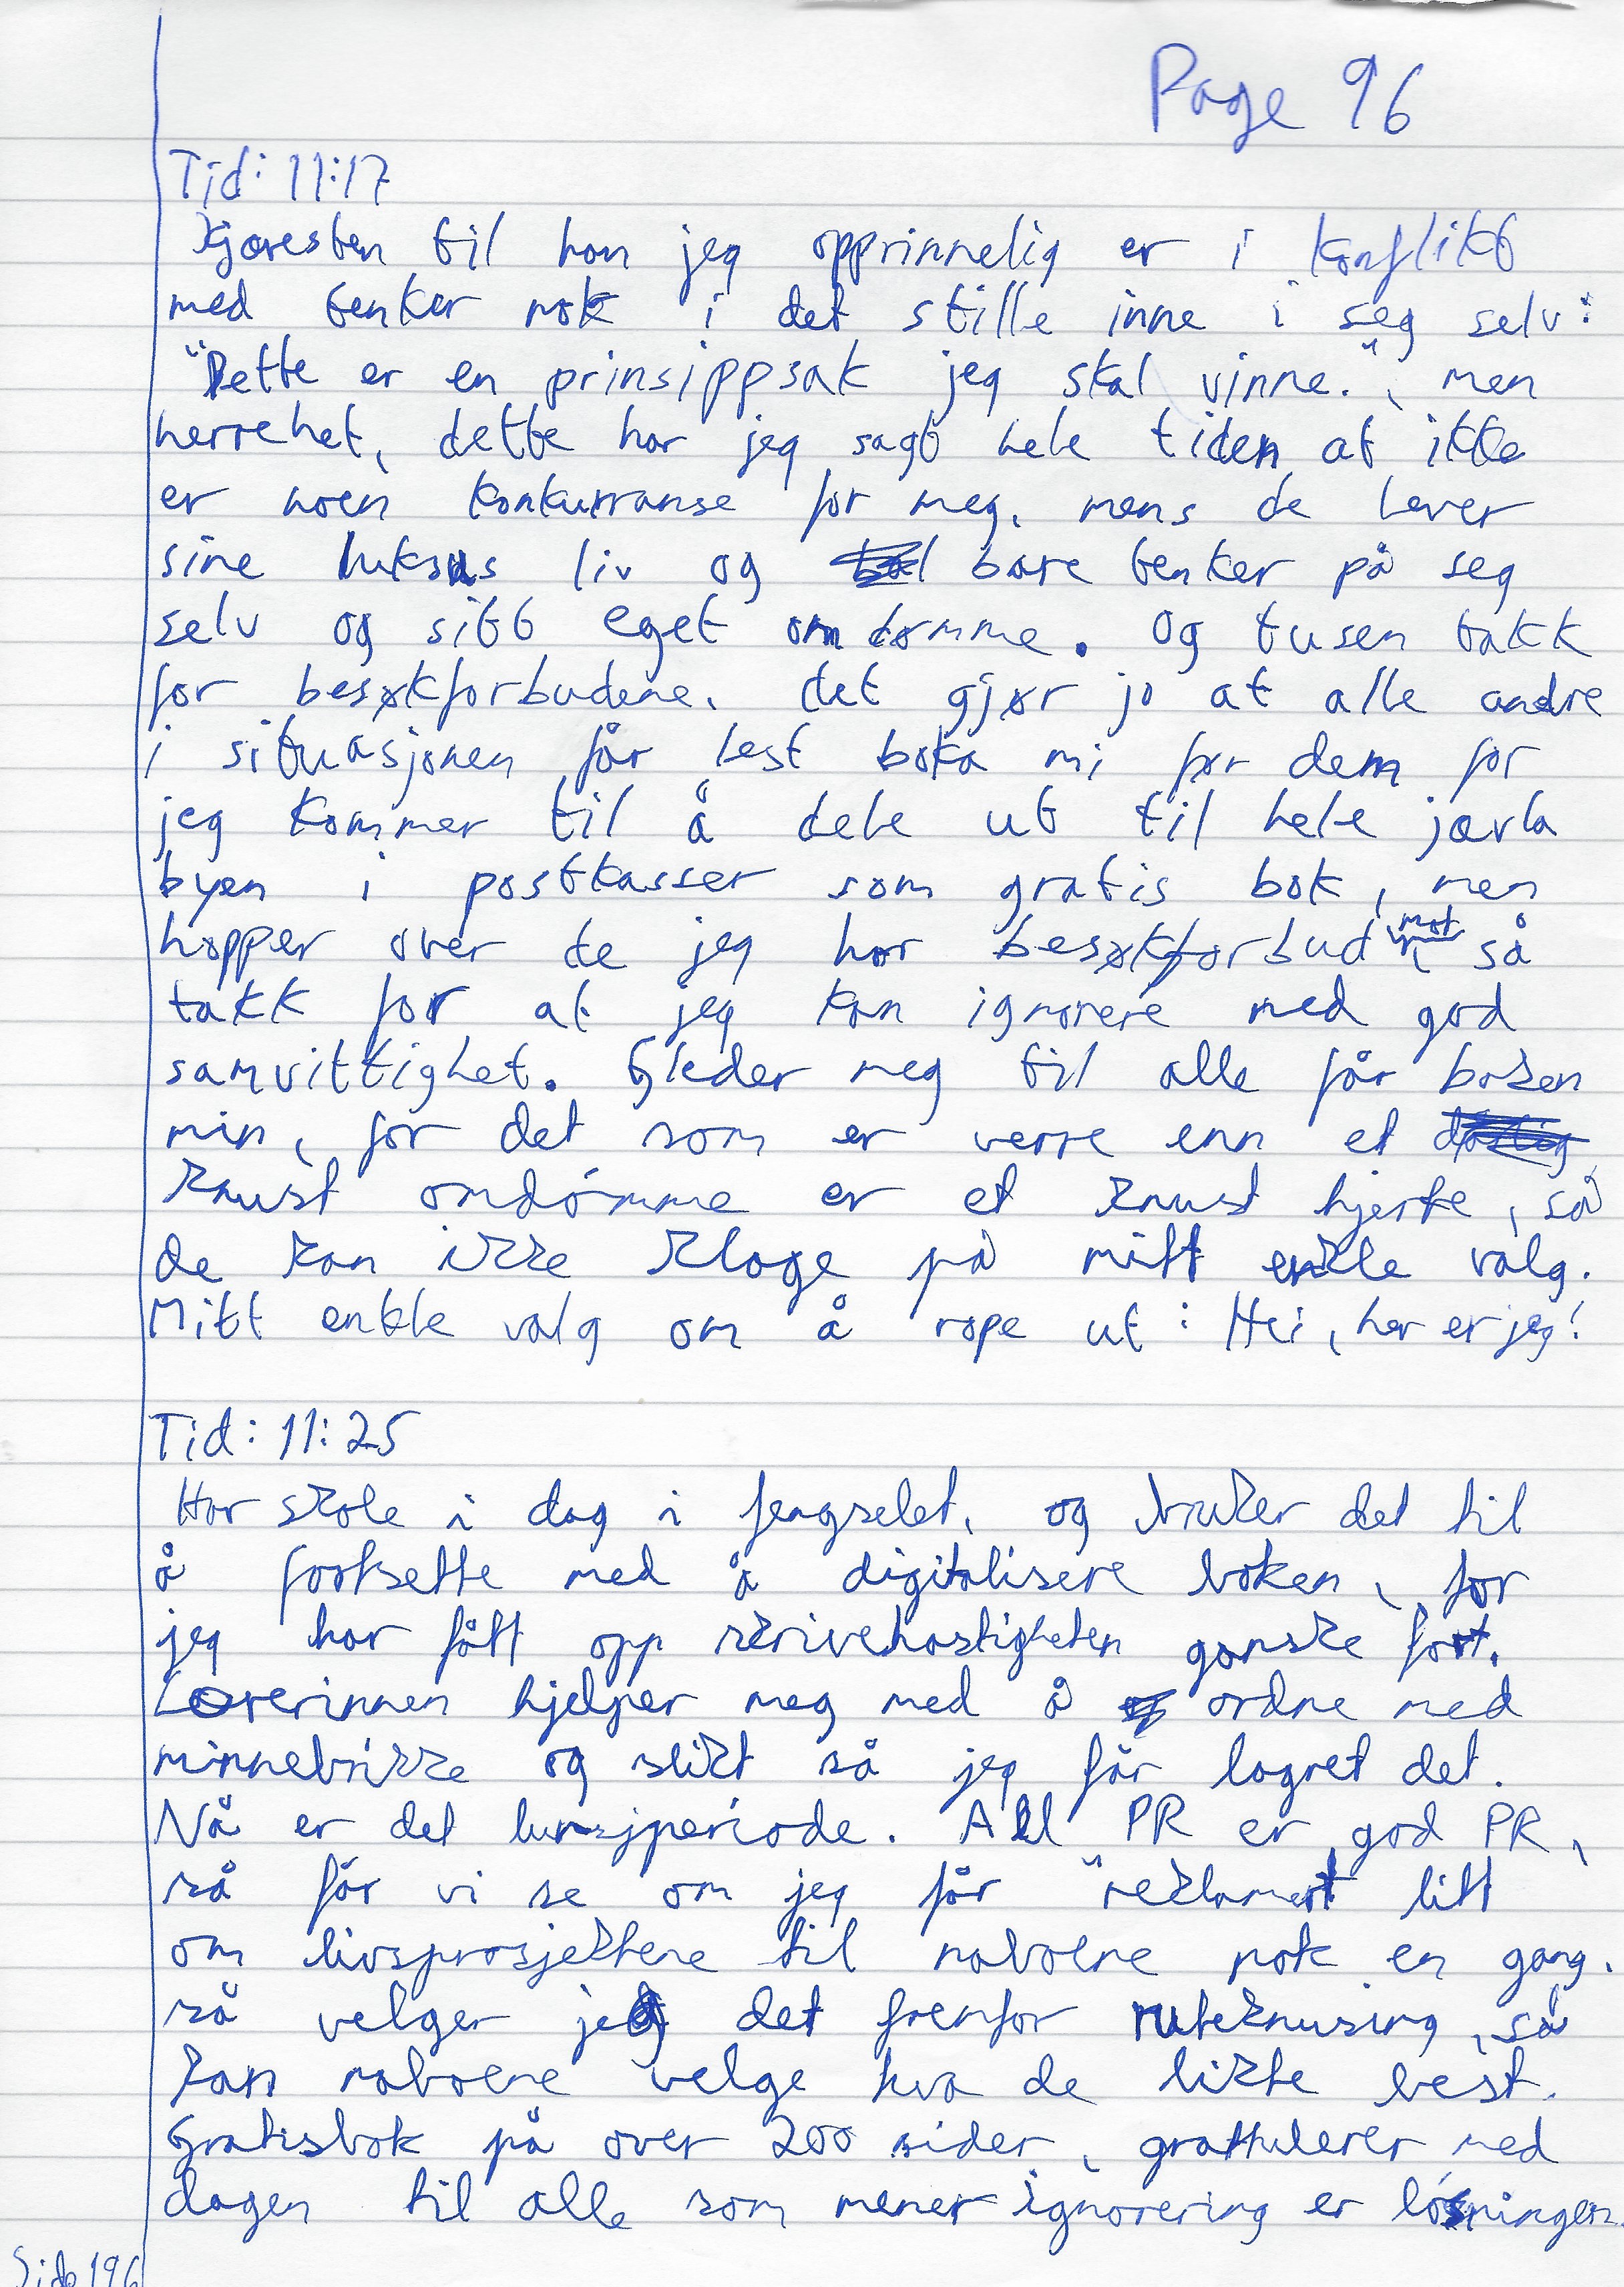 Page 96
Tid: 11:17
Kjæresten til han jeg opprinnelig er i konflikt
med tenker nok i det stille inne i seg selv:
"Dette er en prinsippsak jeg skal vinne.", men
herrehet, dette har jeg sagt hele tiden at ikke
er noen konkurranse for meg, mens de lever
sine luksus liv og bare tenker på seg
selv og sitt eget omdømme. Og tusen takk
for besøkforbudene, det gjør jo at alle andre
i situasjonen får lest boka mi før dem for
jeg kommer til å dele ut til hele jævla
byen i postkasser som gratis bok, men
hopper over de jeg har besøkforbud mot så
takk for at jeg kan ignorere med god
samvittighet. Gleder meg til alle får boken
min, for det som er verre enn et
knust omdømme er et knust hjerte, så
de kan ikke klage på mitt enkle valg.
Mitt enkle valg om å rope ut: Hei, her er jeg!
Tid: 11:25
Har skole i dag i fengselet, og bruker det til
å fortsette med å digitalisere boken, for
jeg har fått opp skrivehastigheten ganske fort.
Lærerinnen hjelper meg med å ordne med
minnebrikke og slikt så jeg får lagret det.
Nå er det lunsjperiode. All PR er god PR,
så får vi se om jeg får "reklamert litt
om livsprosjektene til naboene nok en gang.
så velger jeg det fremfor ruteknusing, så
kan naboene velge hva de likte best.
Gratisbok på over 200 sider, grattulerer med
dagen til alle som mener ignorering er løsningen.
Side 196